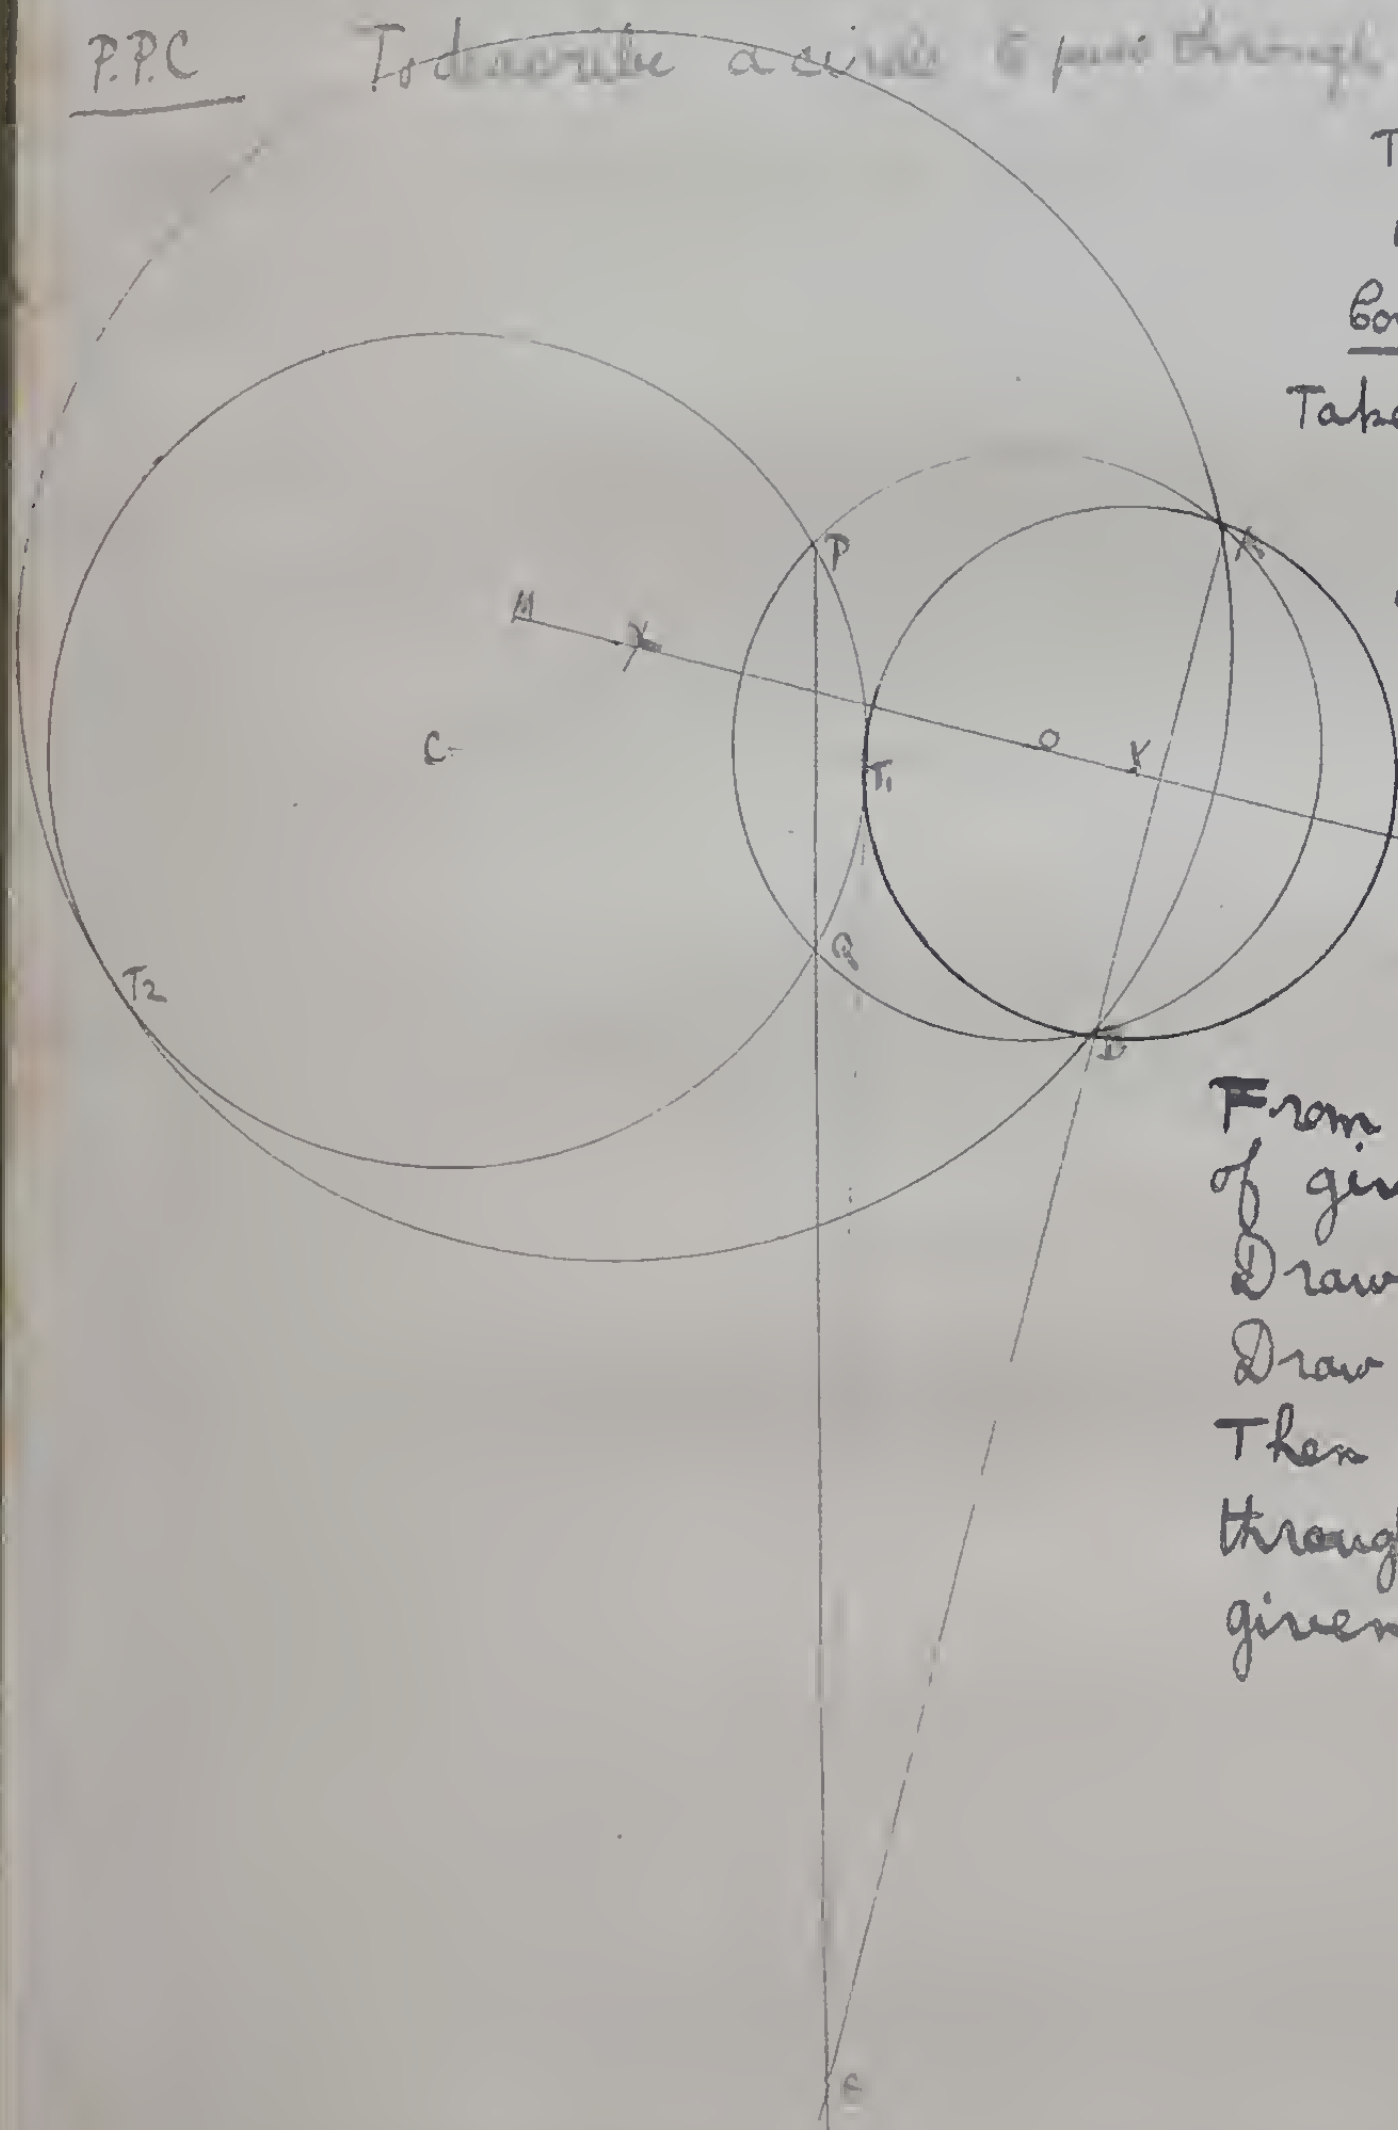 P.P.C To describe a circle to pass through
T
Con
Take
P
A
M
X
C
O
Y
T1
Q
T2
D
From
of giv
Draw
Draw
Then
throug
given